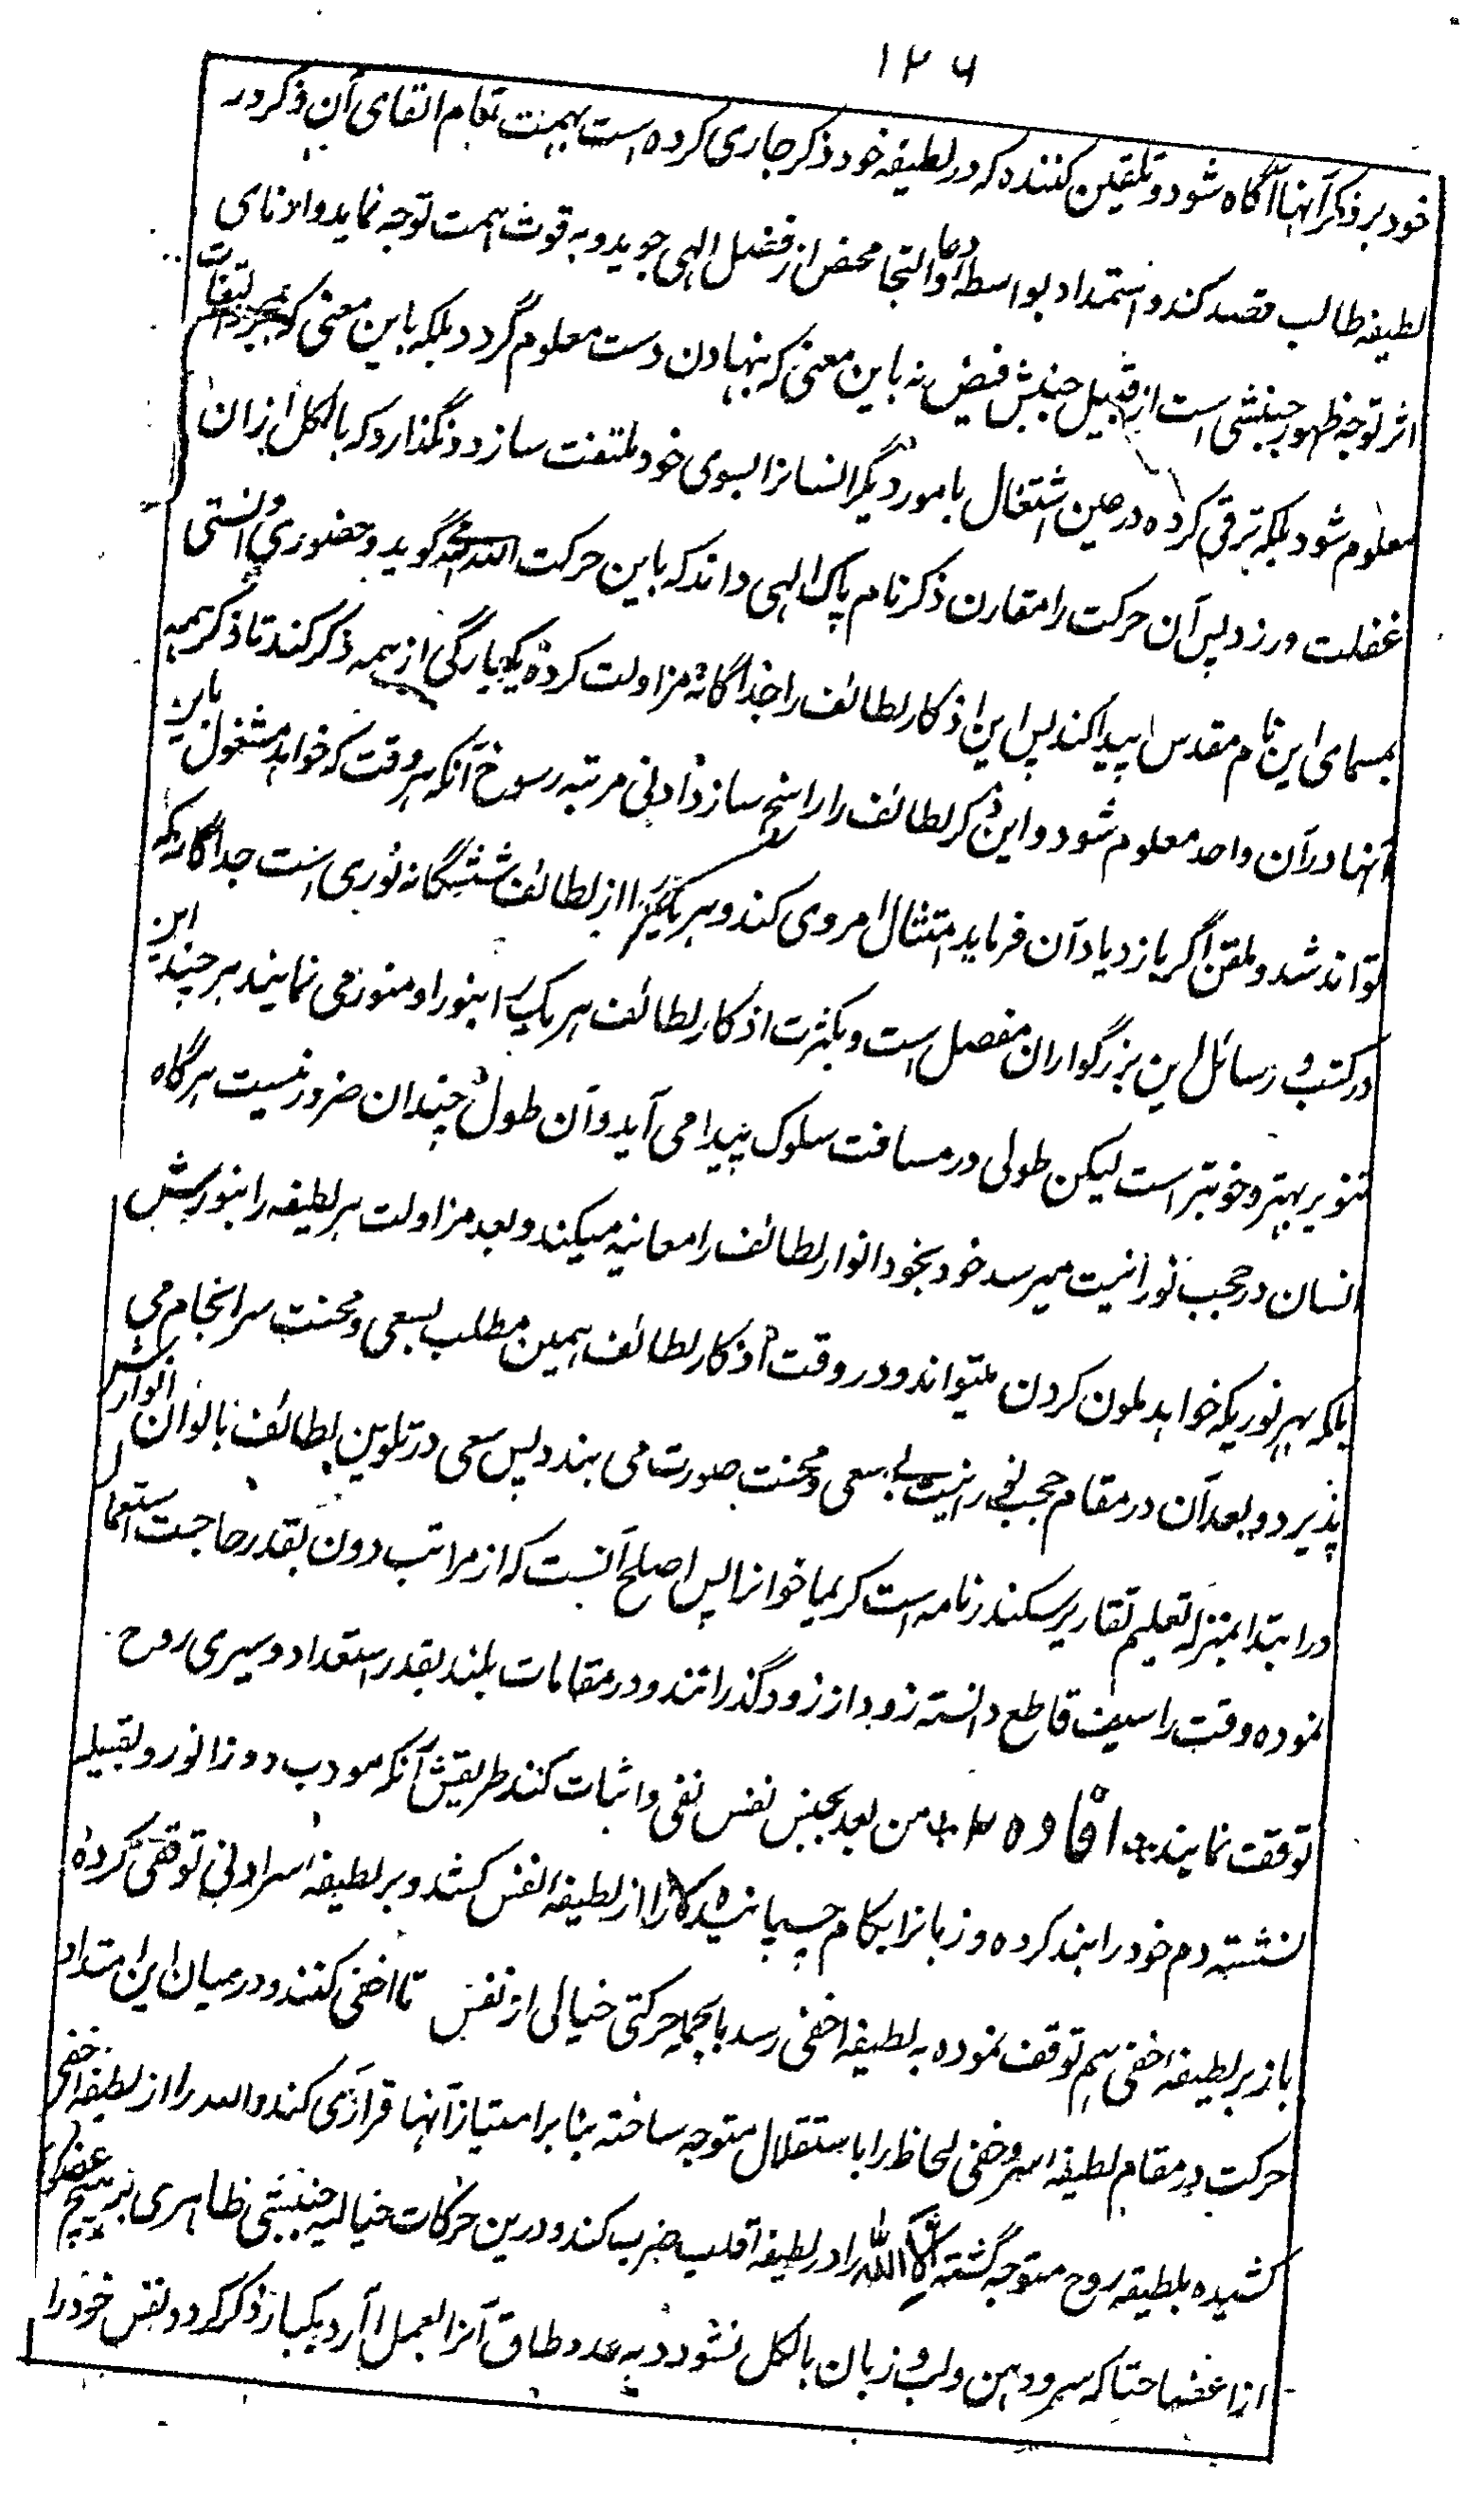 ۱۲۶
خود بر ذکر آنها آگاه شود و تلقین کننده که در لطیفه خود ذکر جاری کرده است بهمت تمام القای آن ذکر در
لطیفه طالب قصد کند و استمداد بواسطه دعا والتجا محض از فضل الهی جوید و به قوت همت توجه نماید و ادنای
اثر توجه ظهور جنبشی است از قبیل جنبش نبض نه باین معنی که بنهادن دست معلوم گردد بلکه باین معنی که بمجرد التفات
معلوم شود بلکه ترقی کرده در عین اشتغال بامور دیگر انسانرا بسوی خود ملتفت سازد و نگذارد که بالکل ازان
غفلت ورزد پس آن حرکت را مقارن ذکر نام پاک الهی داند که باین حرکت الله الله گوید و حضوری و انستی
بمسمای این نام مقدس پیدا کند پس این اذکار لطائف را جداگانه مزاولت کرده یکبارگی از همه ذکر کند تا ذکر همه
آنها در آن واحد معلوم شود و این ذکر لطائف را راسخ سازد و ادنی مرتبه رسوخ آنکه هر وقت که خواهد مشغول باین
تواند شد و ملقن اگر بازدیاد آن فرماید امتثال امر وی کند و هر یکی را از لطائف ششگانه نوری است جداگانه که
در کتب و رسائل این بزرگواران مفصل است و بکثرت اذکار لطائف هر یک را بنور او منور می نمایند هر چند این
تنویر بهتر و خوبتر است لیکن طولی در مسافت سلوک پیدا می آید و آن طول چندان ضرور نیست هر گاه
انسان در حجب نورانیت میرسد خود بخود انوار لطائف را معاینه میکند و بعد مزاولت هر لطیفه را بنورش
بلکه بهر نوریکه خواهد ملون کردن میتواند و در وقت اذکار لطائف همین مطلب بسعی و محنت سرانجام می
پذیرد و بعد آن در مقام حجب نورانیت بی سعی و محنت صورت می بندد پس سعی در تلوین لطائف بالوان انوارش
در ابتدا بمنزله تعلیم تقاریر سکندرنامه است کریما خوانرا پس اصلح آنست که از مراتب دون بقدر حاجت استعمال
نموده وقت را سیف قاطع دانسته زود از زود گذرانند و در مقامات بلند بقدر استعداد و سیری روح
توقف نمایند افاده ۲ من بعد بحبس نفس نفی و اثبات کند طریقش آنکه مودب دو زانو رو بقبله
نشسته دم خود را بند کرده و زبانرا بکام چسپانیده لا را از لطیفه نفس کشد و بر لطیفه سر ادنی توقفی کرده
باز بر لطیفه خفی هم توقف نموده به لطیفه اخفی رسد بالجمله حرکتی خیالی از نفس تا اخفی کنند و در میان این امتداد
حرکت در مقام لطیفه سر و خفی لحاظ را باستقلال متوجه ساخته بنابر امتیاز آنها قرار دی کند و اله را از لطیفه اخفی
کشیده بلطیفه روح متوجه گشته الا الله را در لطیفه قلب ضرب کند و درین حرکات خیالیه جنبشی ظاهری در هیچ عضوی
از اعضا حتا که سر و دهن و لب و زبان بالکل نشود و به عدد طاق آنرا بعمل آرد یکبار ذکر کرده نفس خود را